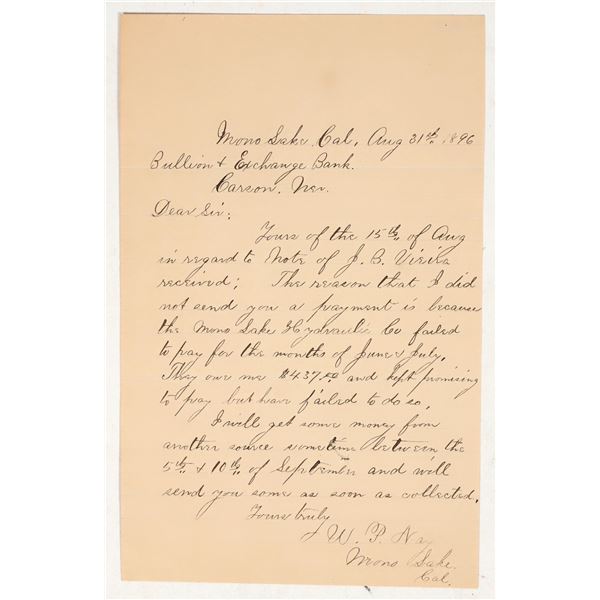 Mono Lake Cal, Aug 31th 1896
Bullion & Exchange Bank.
Carson. Nev.
Dear Sir;
Yours of the 15th of Aug
in regard to Note of J. B. Vieira
received; The reason that I did
not send you a payment is because
the Mono Lake Hydraulic Co failed
to pay for the months of June & July.
They owe me $437.50 and kept promising
to pay but have failed to do so.
I will get some money from
another source sometime between the
5th & 10th of September and will
send you some as soon as collected.
Yours truly
W. P. Nay
Mono Lake.
Cal.